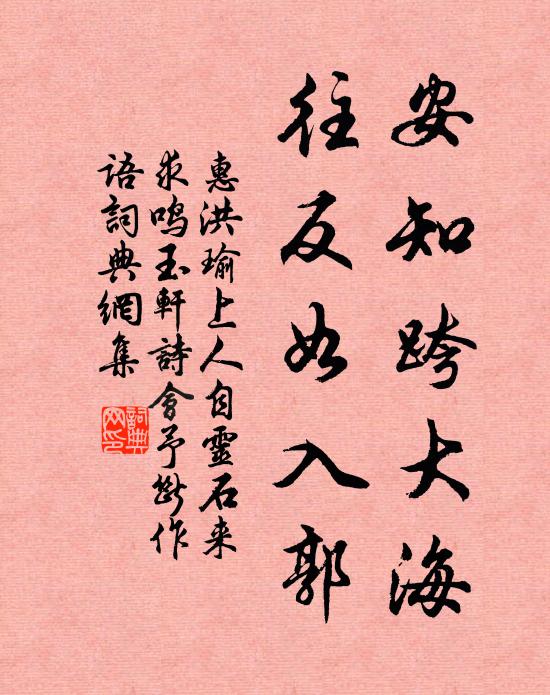 安知跨大海
往反如入郭
惠洪瑜上人自靈石来
求鳴玉軒詩會予斷作
語詞典網集
詞典
网印